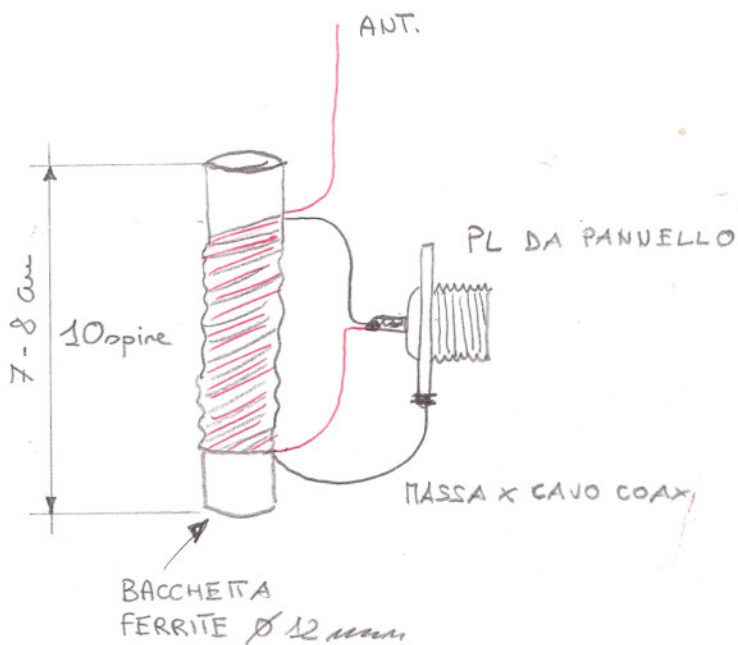 ANT.
PL DA PANNELLO
7-8 cm
10 spire
MASSA X CAVO COAX
BACCHETTA
FERRITE Ø 12 mm